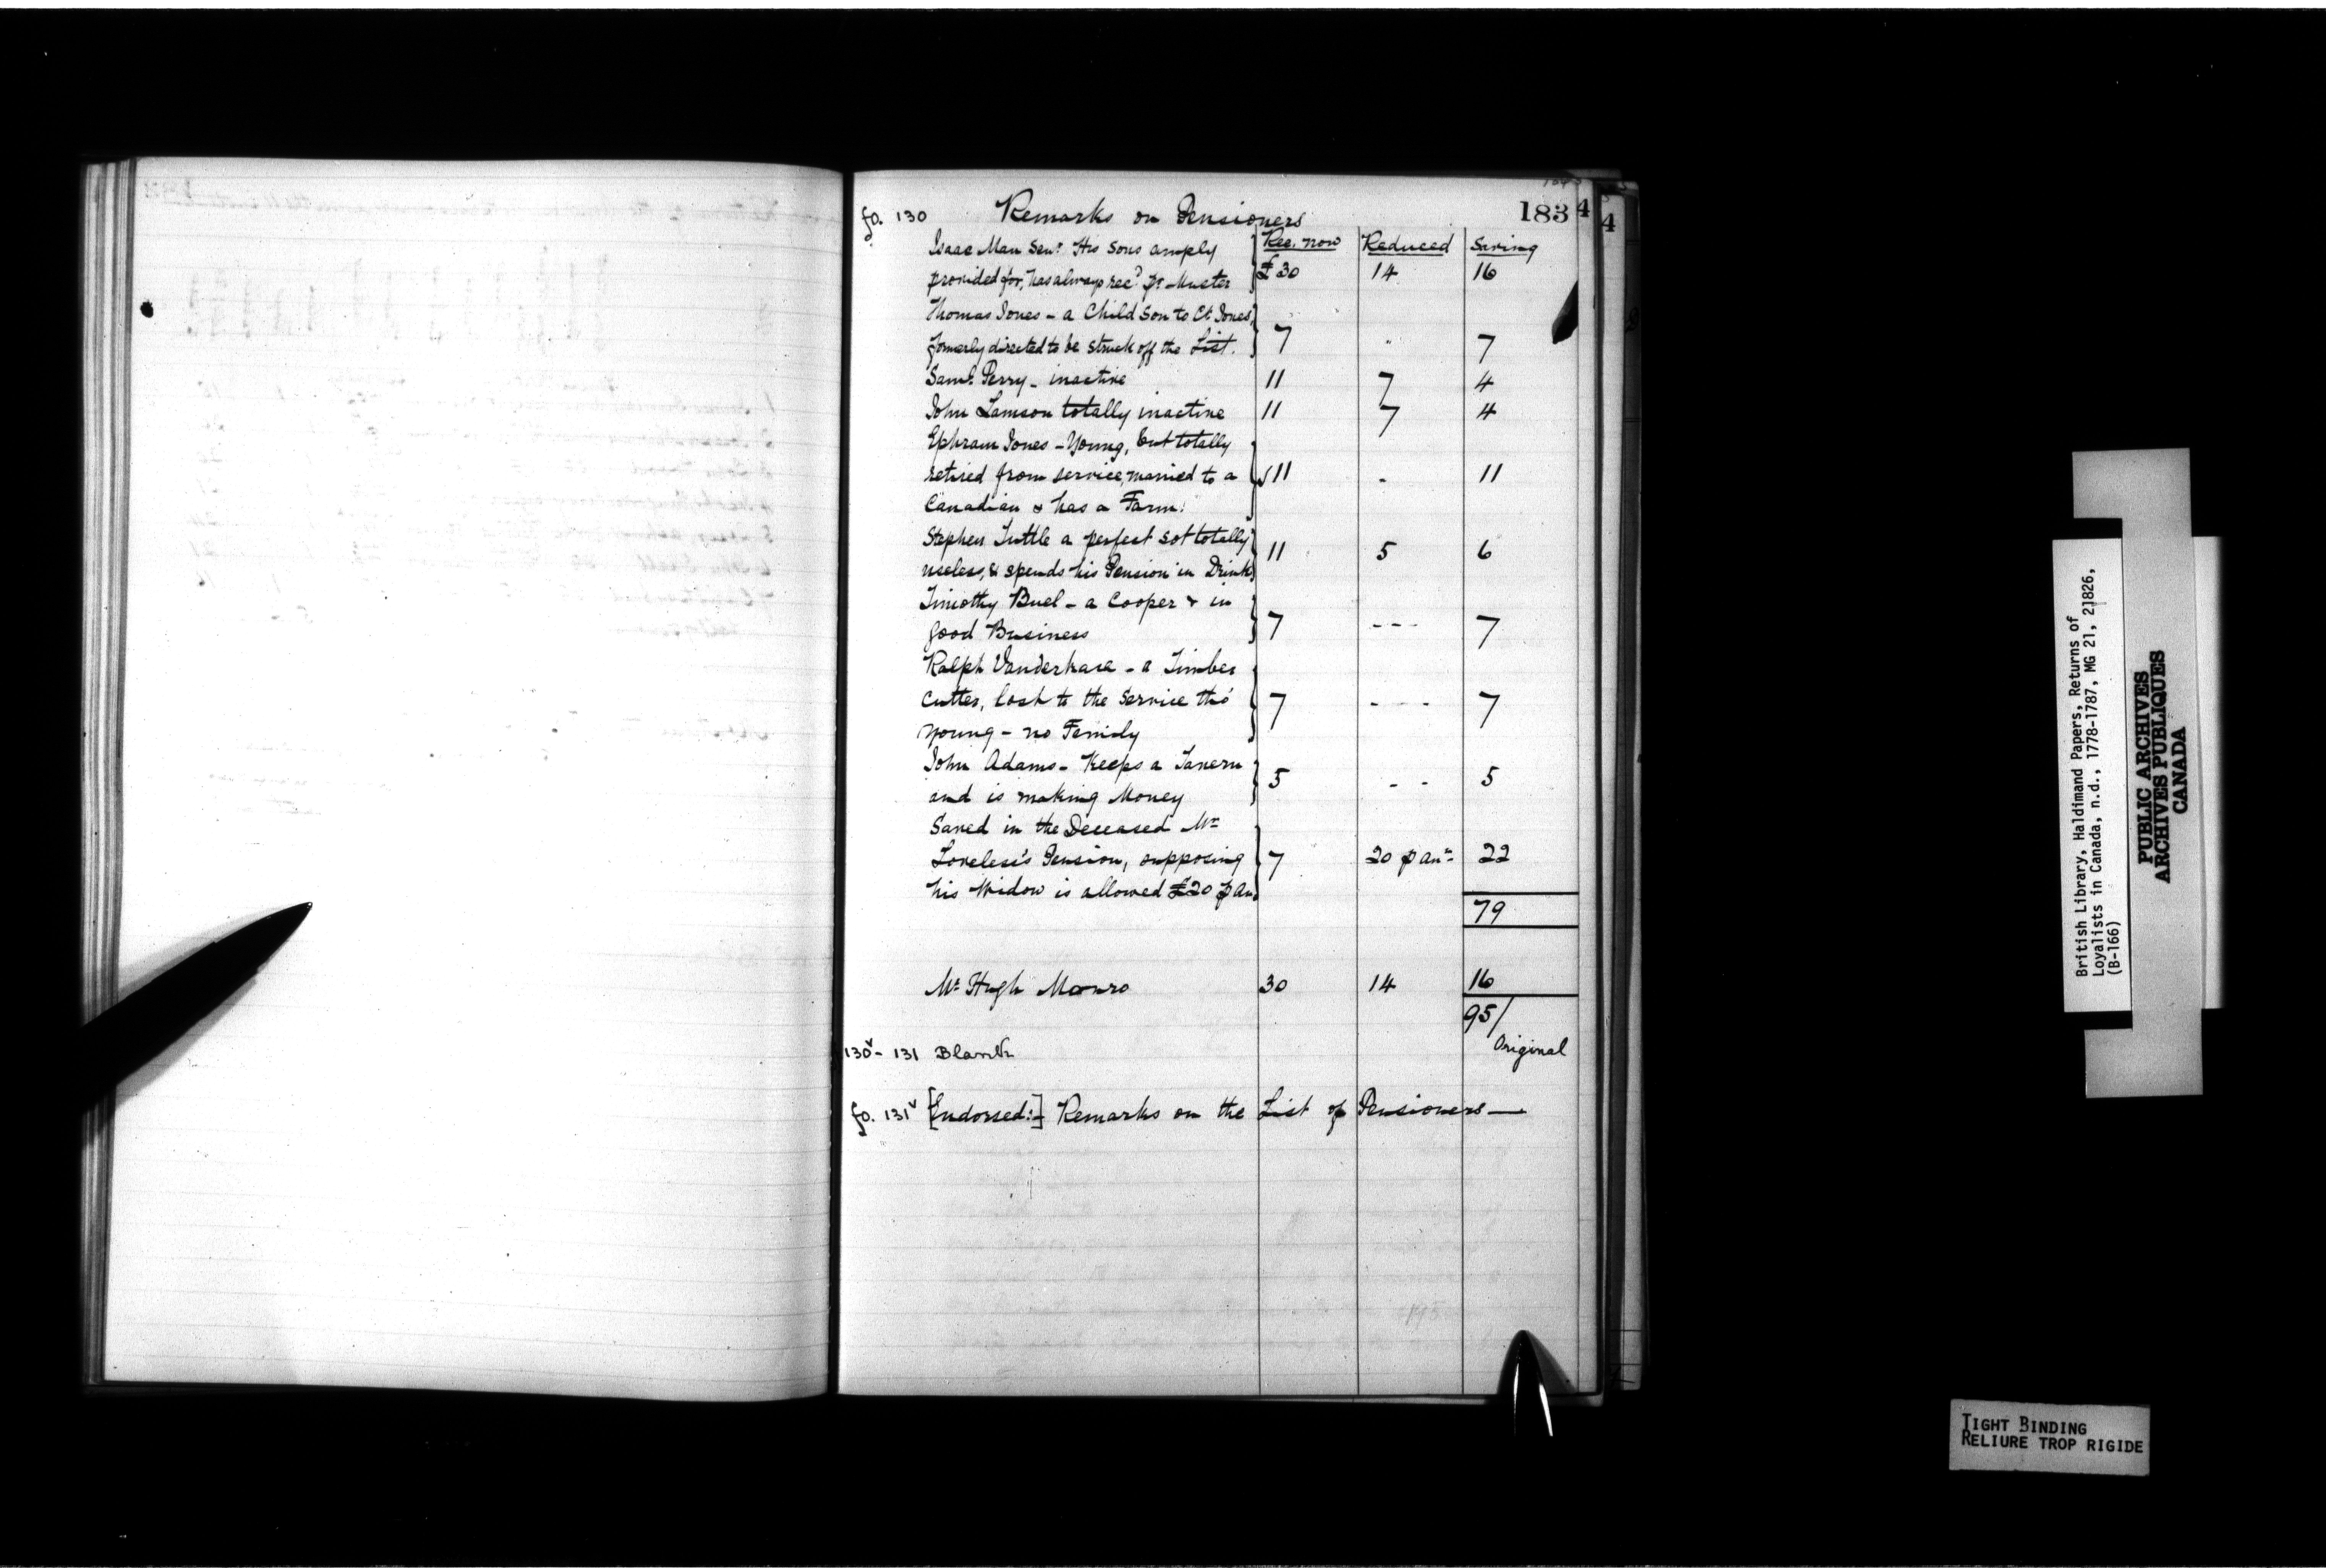 fo. 130 Remarks on Pensioners 183
Rec. now Reduced Saving
Isaac Man Senr. His Sons amply
provided for, has always recd. pr. Muster £30 14 16
Thomas Jones - a Child Son to Ct. Jones,
formerly directed to be struck off the List. 7 " 7
Saml. Perry - inactive 11 7 4
John Lamson totally inactive 11 7 4
Ephraim Jones - Young, but totally
retired from service, married to a 11 - 11
Canadian & has a Farm.
Stephen Tuttle a perfect sot totally
useless, & spends his Pension in Drink 11 5 6
Timothy Buel - a Cooper & in
good Business 7 --- 7
Ralph Vanderhare - a Timber
Cutter, lost to the Service tho'
young - no Family 7 --- 7
John Adams - Keeps a Tavern
and is making Money 5 -- 5
Saved in the Deceased Mr
Loveless's Pension, supposing 7 20 p ann 22
his Widow is allowed £20 p an.
79
Mr Hugh Monro 30 14 16
95/
130v - 131 Blank Original
fo. 131v [Endorsed:-] Remarks on the List of Pensioners —
4
4
British Library, Haldimand Papers, Returns of
Loyalists in Canada, n.d., 1778-1787, MG 21, 21826,
(B-166)
PUBLIC ARCHIVES
ARCHIVES PUBLIQUES
CANADA
TIGHT BINDING
RELIURE TROP RIGIDE